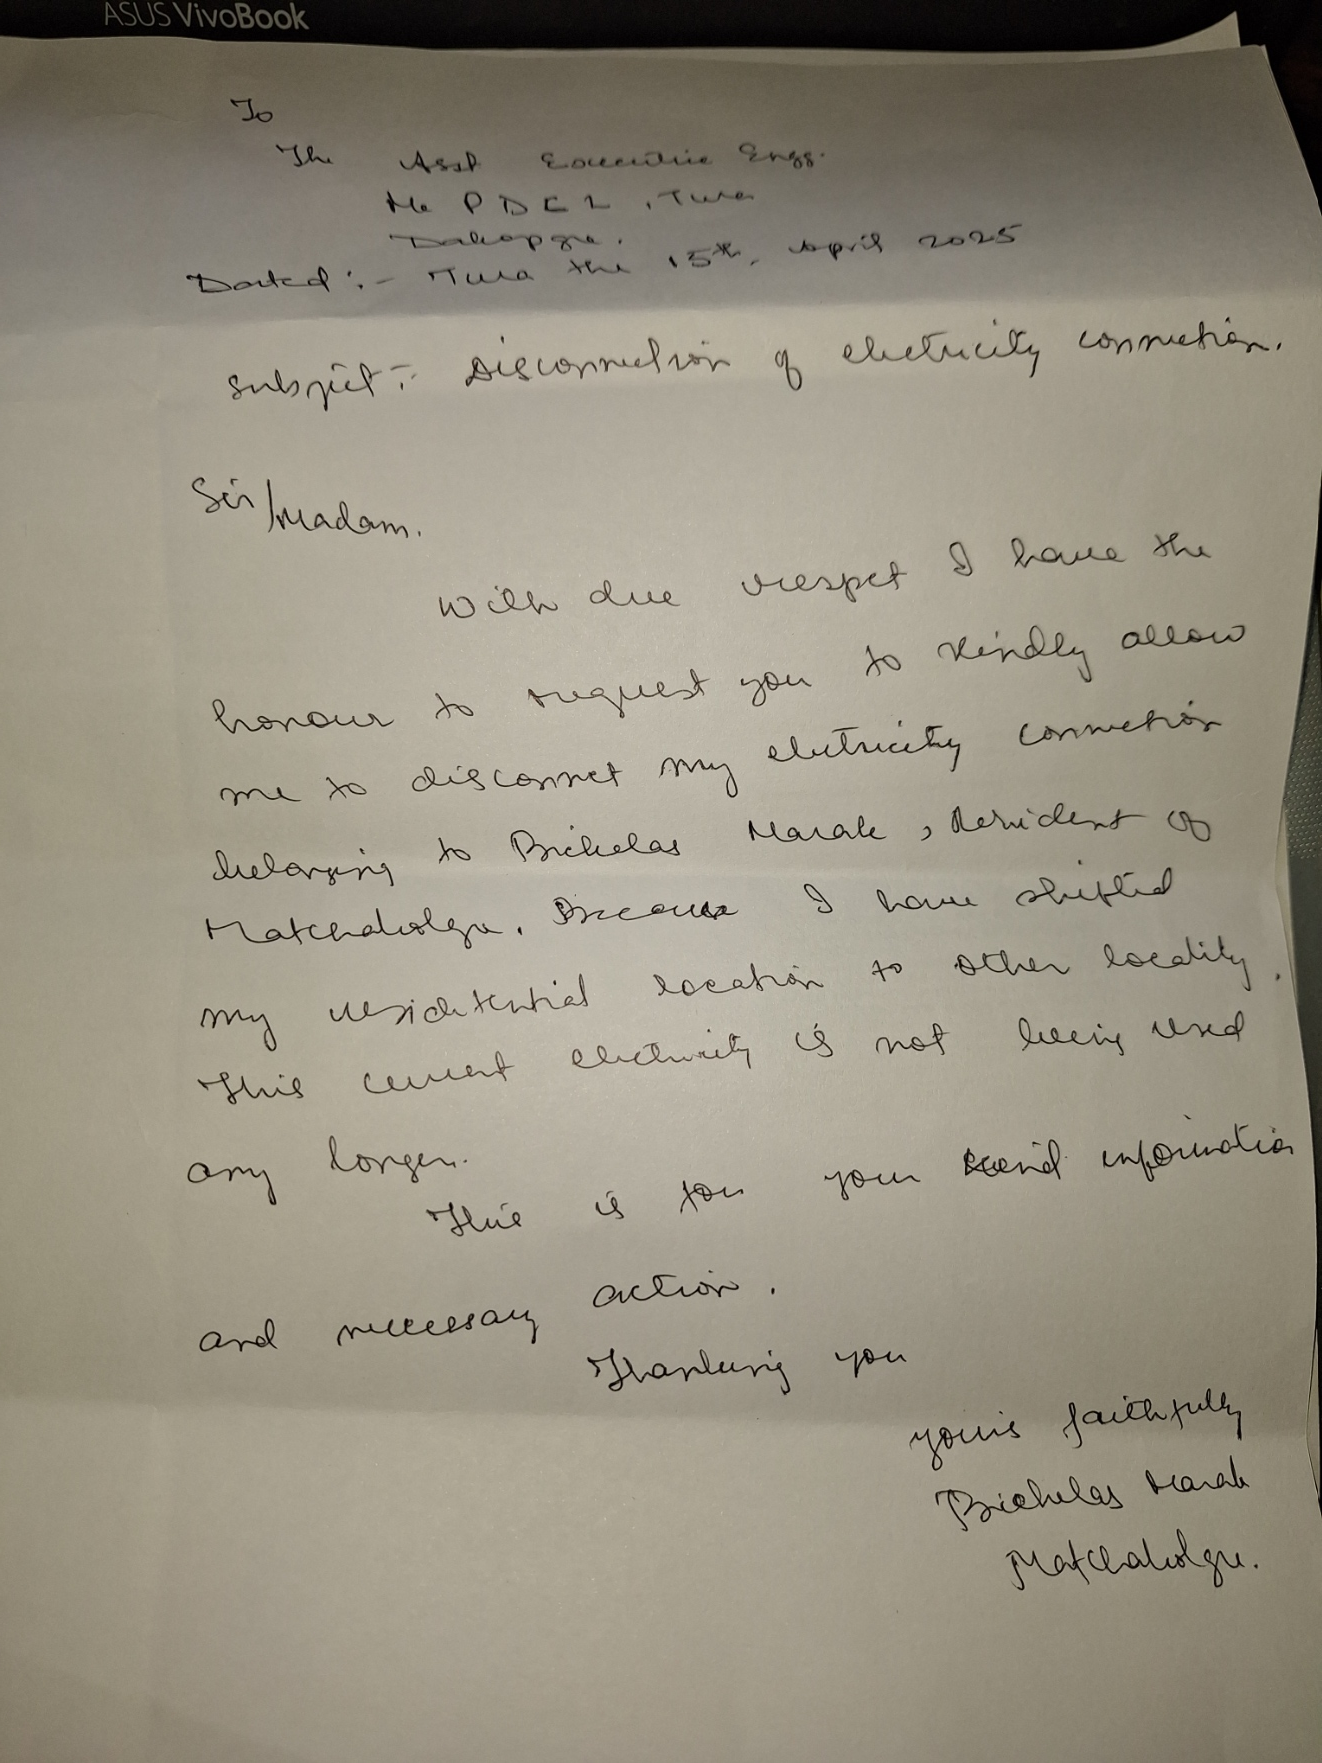 ASUS VivoBook
To
The Asst Executive Engg.
Me P D C L, Tura
Dakopgre.
Dated :- Tura the 15th, April 2025
Subject :- Disconnection of electricity connection.
Sir/Madam.
With due respect I have the
honour to request you to kindly allow
me to disconnect my electricity connection
belonging to Bichelas Marak, Resident of
Matchakolgre. Because I have shifted
my residential location to other locality.
This current electricity is not being used
any longer.
This is for your kind information
and necessary action.
Thanking you
yours faithfully
Bichelas Marak
Matchakolgre.